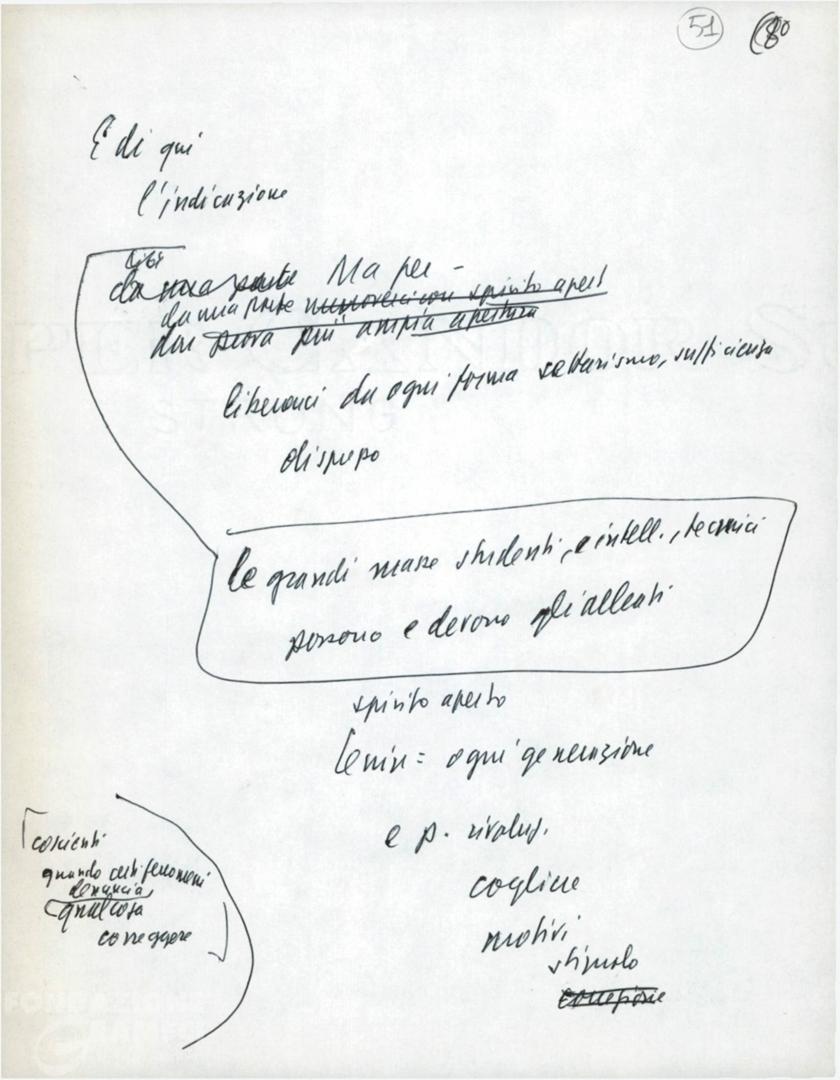 51
È di qui
l'indicazione
da una parte Ma per -
da una parte muoverci con spirito apert
dar prova più ampia apertura
liberarci da ogni forma settarismo, sufficienza
STRONG
le grandi masse studenti, e intell., tecnici
possono e devono gli alleati
spirito aperto
Lenin = ogni generazione
e p. rivoluz.
coscienti
quando certi fenomeni
denuncia
qualcosa
correggere
cogliere
motivi
stimolo
correzione
FONDAZIONE
GRAMSCI